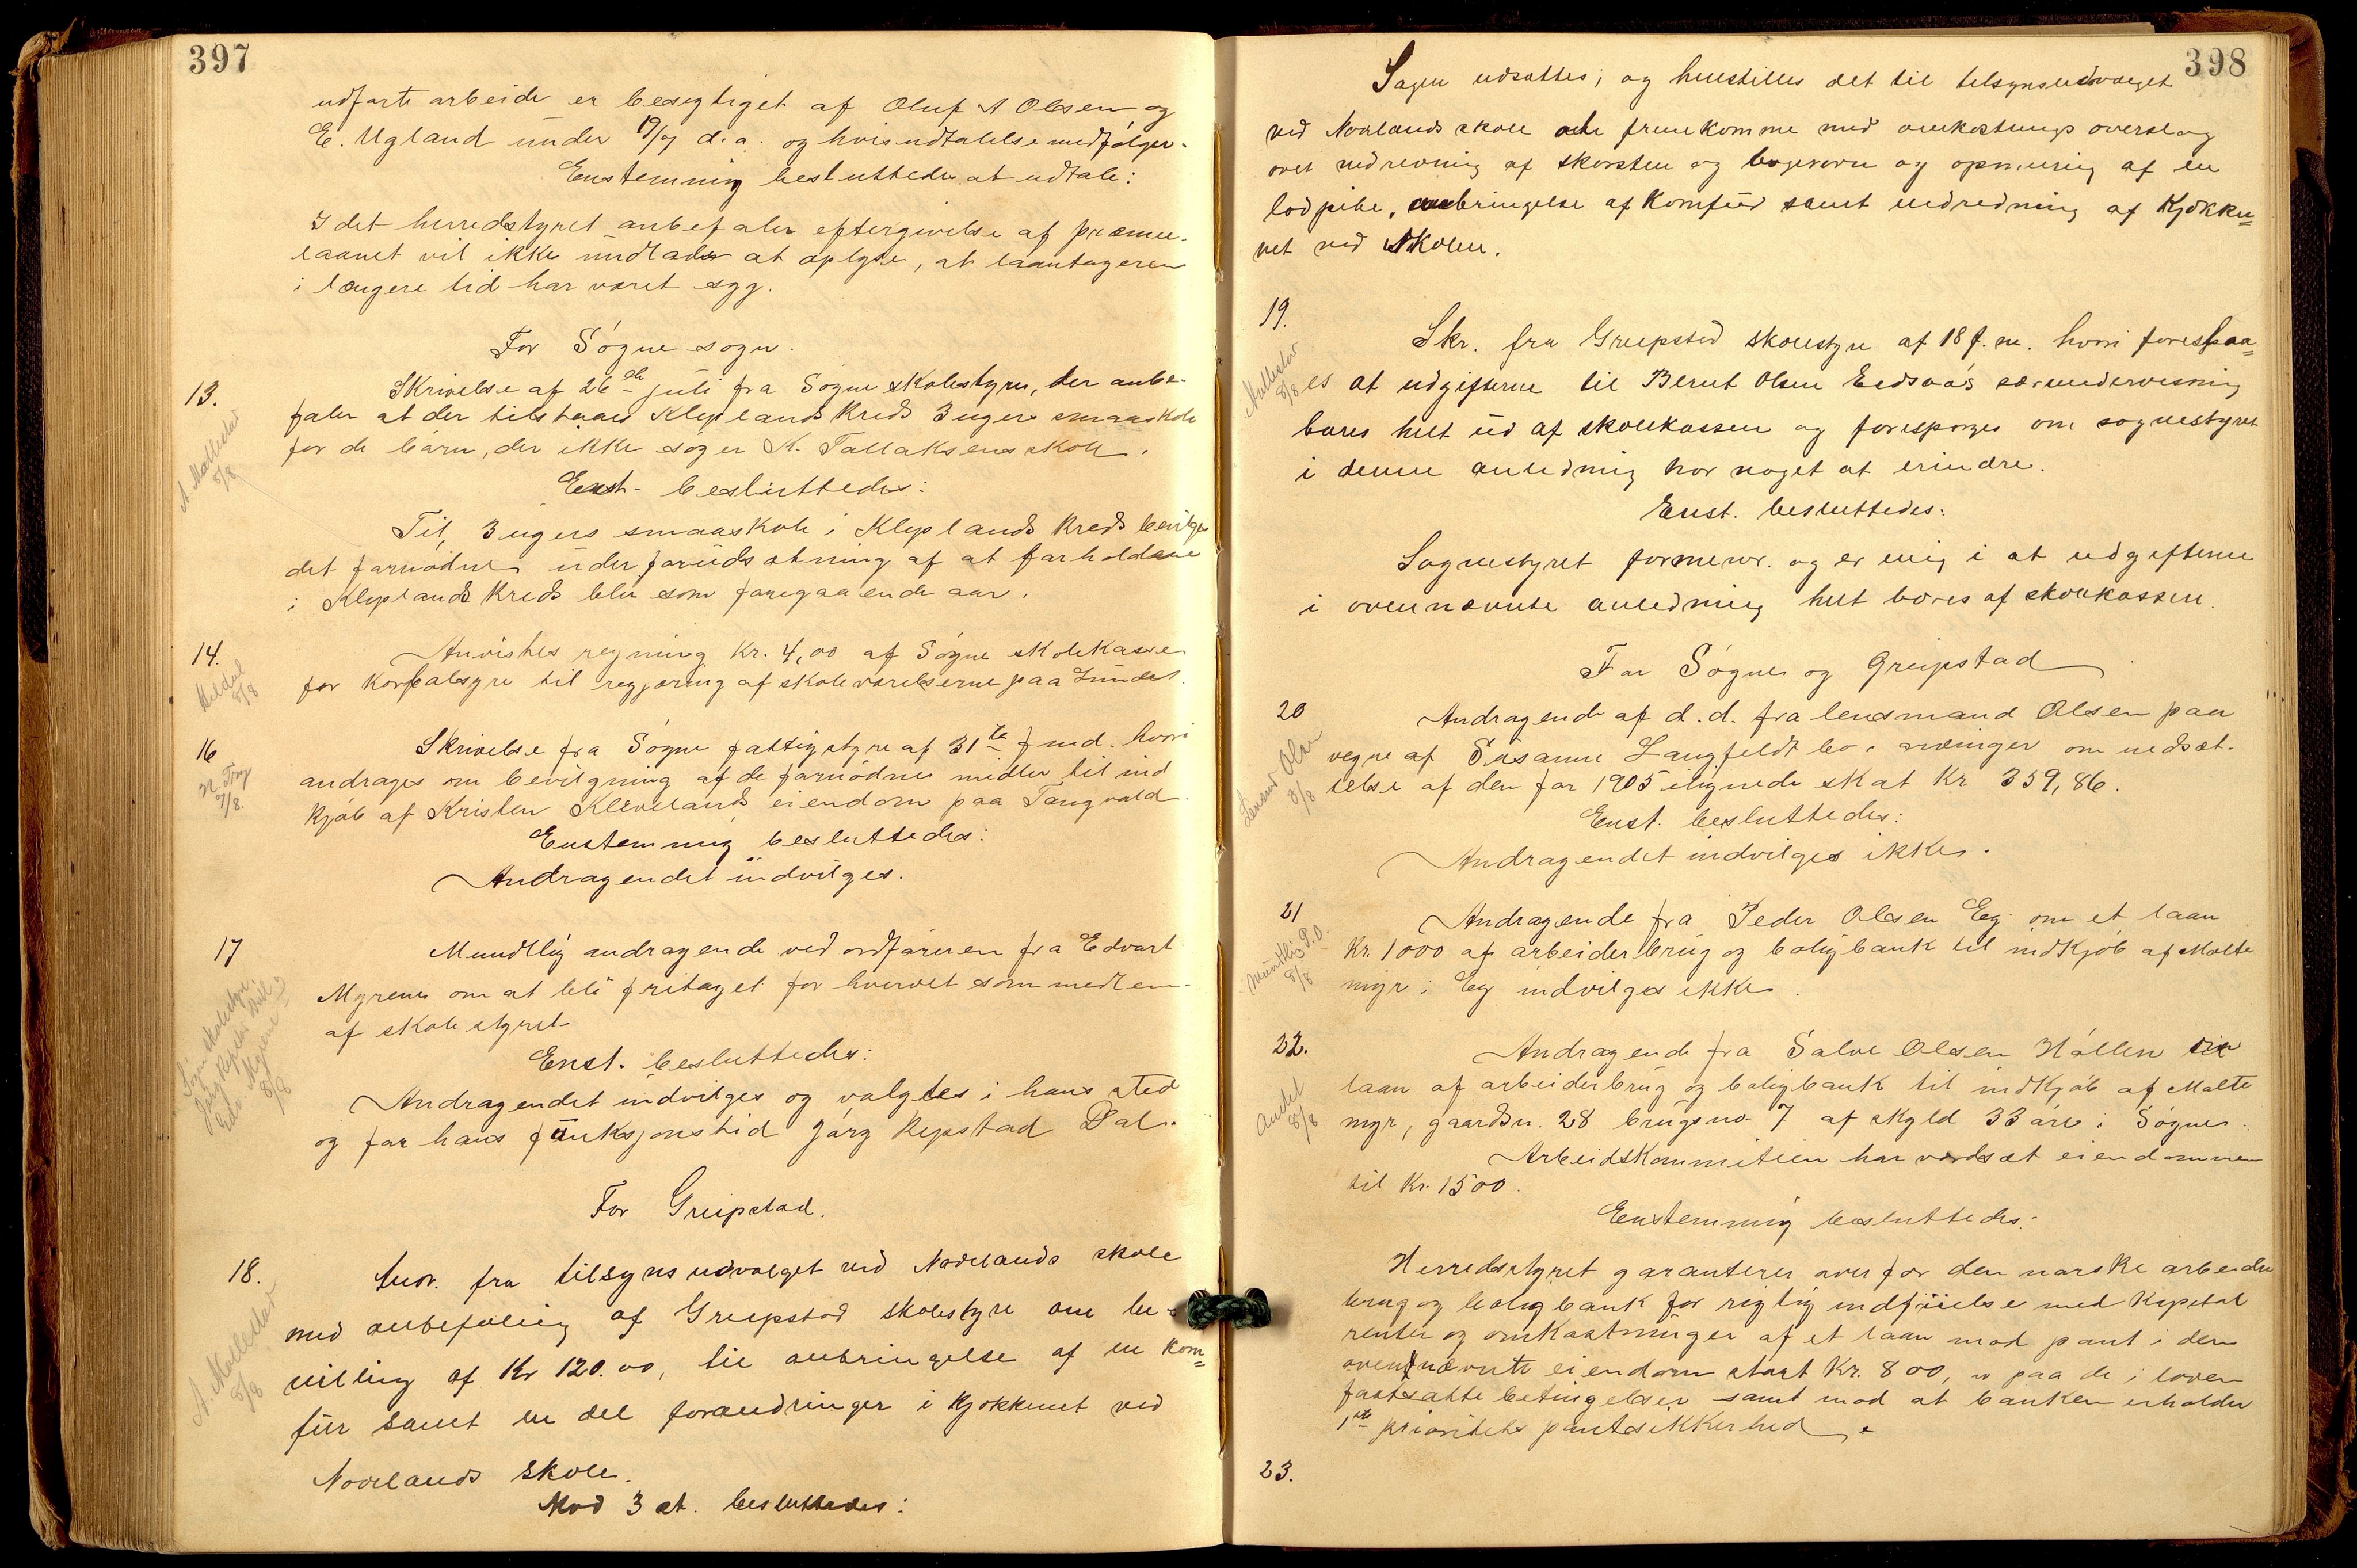 397
udførte arbeide er besigtiget af Oluf A Olsen og
E. Ugland under 19/7 d.a. og hvis udtalelse medfølger.
Enstemmig besluttedes at udtale:
I det herredstyret anbefaler eftergivelse af præmie-
laanet vil ikke undlade at oplyse, at laantageren
i længere tid har været syg.
For Søgne sogn.
13.
A Mollestad
8/8
Skrivelse af 26de juli fra Søgne skolestyre, der anbe-
faler at der tilstaaes Kleplands kreds 3 ugers smaaskole
for de børn, der ikke søger K. Tallaksens skole.
Enst. besluttedes:
Til 3 ugers smaaskole i Kleplands kreds bevilges
det fornødne under forudsætning af at forholdene
i Kleplands kreds blir som foregaaende aar.
14.
8/8
Anvistes regning Kr. 4,00 af Søgne skolekasse
for Korbalsyre til regjøring af skoleværelserne paa Lunde.
16
7/8.
Skrivelse fra Søgne fattigstyre af 31te f md. hvori
andrages om bevilgning af de fornødne midler til ind
kjøb af Kristen Klevelands eiendom paa Tangvald.
Enstemmig besluttedes:
Andragendet indvilges.
17
Søgne skolestyre
Jørg Repstad Dal og
Edv. Myrene
8/8
Mundtlig andragende ved ordføreren fra Edvart
Myrene om at bli fritaget for hvervet som medlem
af skolestyret
Enst. besluttedes:
Andragendet indvilges og valgtes i hans sted
og for hans funksjonstid Jørg Repstad Dal.
For Greipstad.
18.
A. Mollestad
8/8
fra tilsynsudvalget ved Nodelands skole
med anbefaling af Greipstad skolestyre om be-
villing af Kr 120.00, til anbringelse af en kom=
für samt en del forandringer i kjøkkenet ved
Nodelands skole.
Mod 3 st. besluttedes:
398
Sagen udsættes; og henstilles det til tilsynsudvalget
ved Nodelands skole at fremkomme med omkostnings overslag
over nedrivning af skorsten og bagerovn og opmuring af en
lodpibe, anbringelse af Komfür samt indredning af Kjøkke=
net ved skolen.
19.
Mollestad
8/8
Skr. fra Greipstad skolestyre af 18 f.m. hvori foreslaa=
es at udgifterne til Bernt Olsen Eidsaas særundervisning
bæres helt ud af skolekassen og forespørges om sognestyret
i denne anledning har noget at erindre.
Enst. besluttedes:
Sognestyret formener og er enig i at udgifterne
i ovennævnte anledning helt bæres af skolekassen.
For Søgne og Greipstad
20
Lensmd Olsen
8/8
Andragende af d.d. fra lensmand Olsen paa
vegne af Susanne Langfeldt bo i arvinger om nedsæt-
telse af den for 1905 ilignede skat Kr 359,86.
Enst. besluttedes:
Andragendet indvilges ikke.
21
Müntlig P.O.
8/8
Andragende fra Peder Olsen Eg om et laan
Kr. 1000 af arbeiderbrug og boligbank til indkjøb af Molte
myr i Eg indvilges ikke.
22.
Andel
8/8
Andragende fra Salve Olsen Hállen om
laan af arbeiderbrug og boligbank til indkjøb af Molte
myr, gaardsn. 28 brugsno 7 af skyld 33 øre i Søgne.
Arbeidskommiteen har værdsat eiendommen
til Kr. 1500.
Enstemmig besluttedes:
Herredstyret garanterer over for den norske arbeider
brug og boligbank for rigtig indfrielse med Kapital
renter og omkostninger af et laan mod pant i den
ovennævnte eiendom stort Kr. 800, paa de i loven
fastsatte betingelser samt mod at banken erholder
1ste prioritets pantesikkerhed.
23.